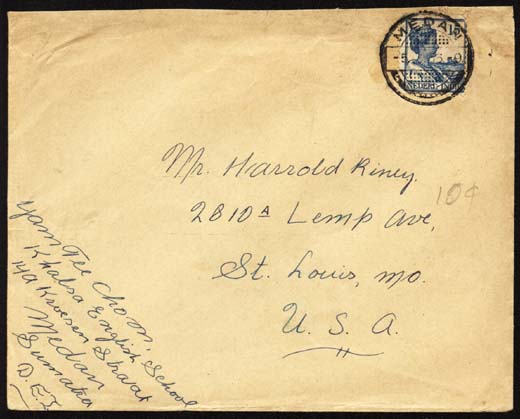 MEDAN
NEDERL-INDIE
Mr. Harrold Riney.
10¢
2810A Lemp Ave,
St. Louis, Mo.
U. S. A.
Yam Tee Chom,
Khalsa English School
14A Kroesen Straat
Medan
Sumatra
D.E.I.